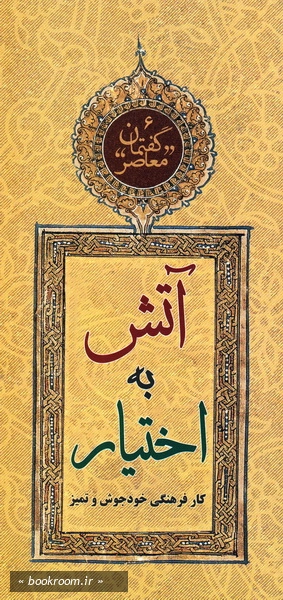 ۶
گفتمان
„معاصر“
آتش
به
اختیار
کار فرهنگی خودجوش و تمیز
« bookroom.ir »